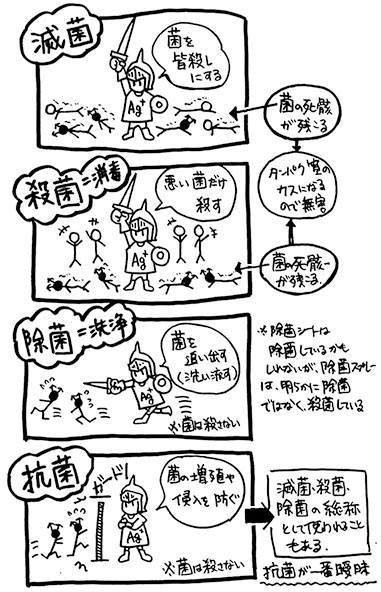 滅菌
菌を
皆殺し
にする
Ag+
菌の死骸
が残こる
タンパク質の
カスになる
ので無害
殺菌=消毒
悪い菌だけ
殺す
Ag+
菌の死骸
が残こる
除菌=洗浄
菌を
追い出す
(洗い流す)
Ag+
※菌は殺さない
※除菌シートは
除菌しているかも
しれないが、除菌スプレー
は、明らかに除菌
ではなく、殺菌している
抗菌
ガード!
菌の増殖や
侵入を防ぐ
Ag+
※菌は殺さない
滅菌・殺菌・
除菌の総称
として使われること
もある.
抗菌が一番曖昧